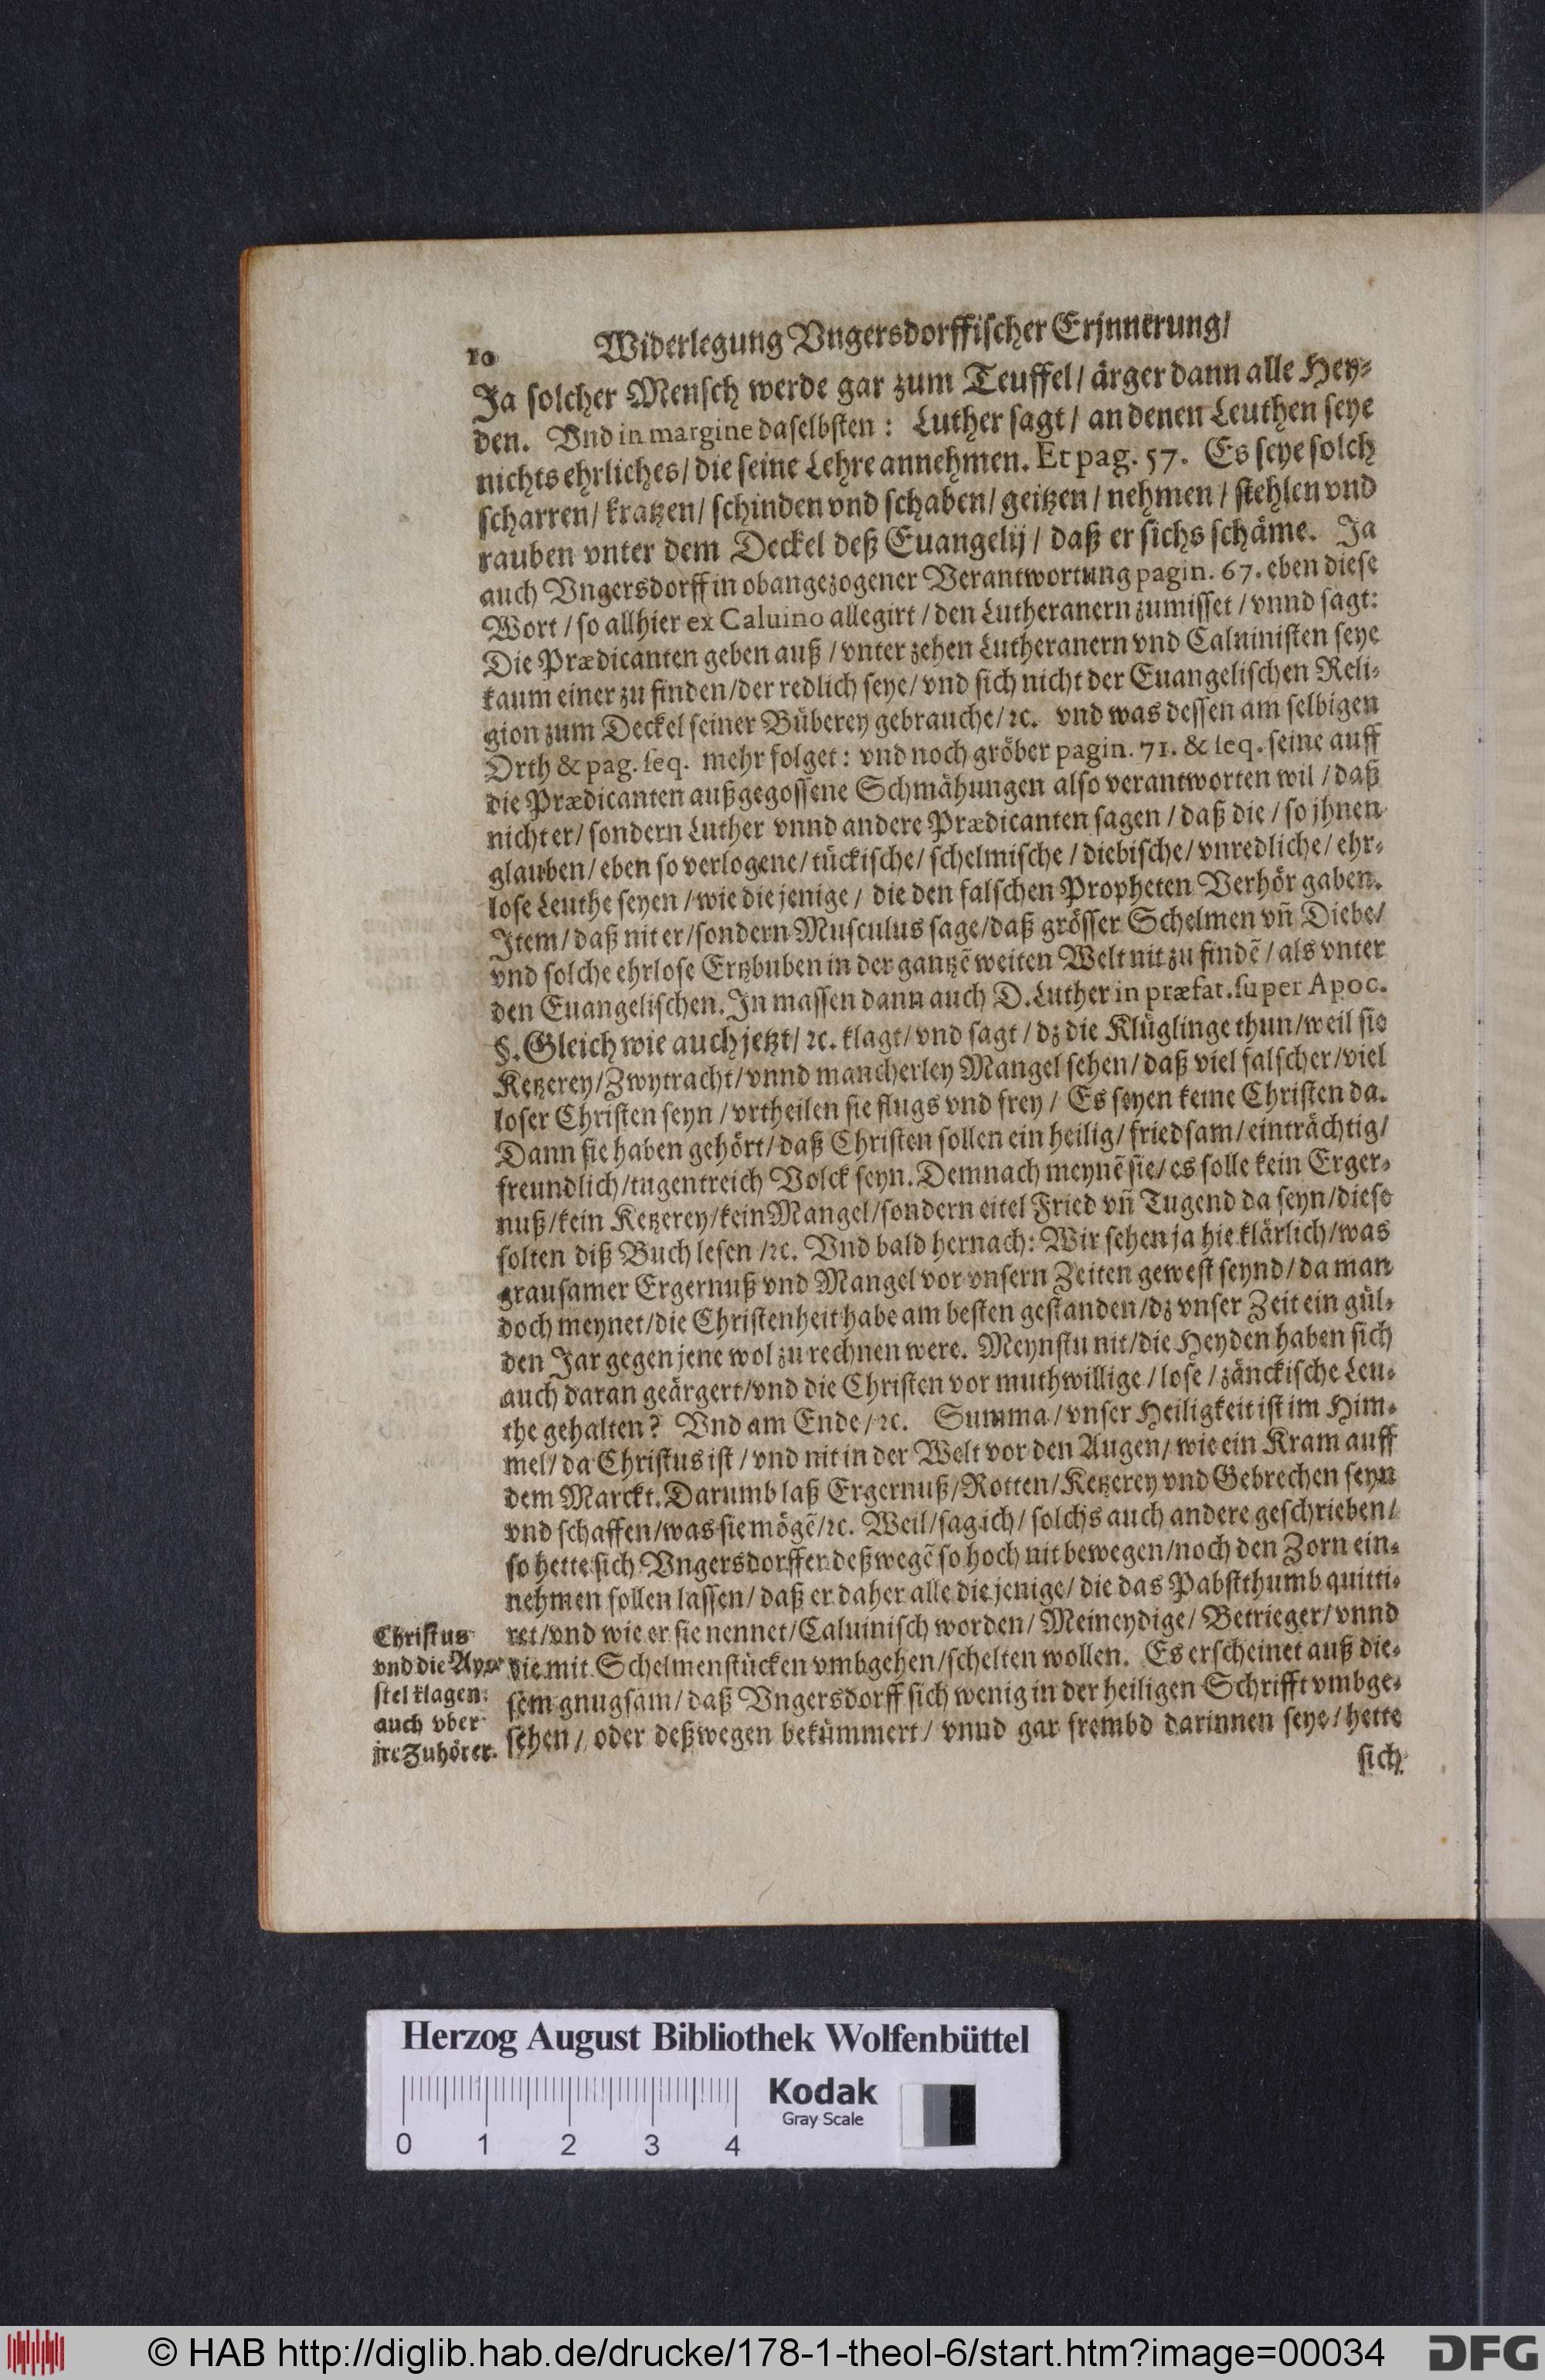 10 Widerlegung Vngersdorffischer Erjnnerung/
Ja solcher Mensch werde gar zum Teuffel/ ärger dann alle Hey-
den. Vnd in margine daselbsten: Luther sagt/ an denen Leuthen seye
nichts ehrliches/ die seine Lehre annehmen. Et pag. 57. Es seye solch
scharren/ kratzen/ schinden vnd schaben/ geitzen/ nehmen/ stehlen vnd
rauben vnter dem Deckel deß Euangelij/ daß er sichs schäme. Ja
auch Vngersdorff in obangezogener Verantwortung pagin. 67. eben diese
Wort/ so allhier ex Caluino allegirt/ den Lutheranern zumisset/ vnnd sagt:
Die Prædicanten geben auß/ vnter zehen Lutheranern vnd Caluinisten seye
kaum einer zu finden/ der redlich seye/ vnd sich nicht der Euangelischen Reli-
gion zum Deckel seiner Büberey gebrauche/ ꝛc. vnd was dessen am selbigen
Orth & pag. seq. mehr folget: vnd noch gröber pagin. 71. & seq. seine auff
die Prædicanten außgegossene Schmähungen also verantworten wil/ daß
nicht er/ sondern Luther vnnd andere Prædicanten sagen/ daß die/ so jhnen
glauben/ eben so verlogene/ tückische/ schelmische/ diebische/ vnredliche/ ehr-
lose Leuthe seyen/ wie die jenige/ die den falschen Propheten Verhör gaben.
Item/ daß nit er/ sondern Musculus sage/ daß grösser Schelmen vn̄ Diebe/
vnd solche ehrlose Ertzbuben in der gantzē weiten Welt nit zu findē/ als vnter
den Euangelischen. In massen dann auch D. Luther in præfat. super Apoc.
§. Gleich wie auch jetzt/ ꝛc. klagt/ vnd sagt/ dz die Klüglinge thun/ weil sie
Ketzerey/ Zwytracht/ vnnd mancherley Mangel sehen/ daß viel falscher/ viel
loser Christen seyn/ vrtheilen sie flugs vnd frey/ Es seyen keine Christen da.
Dann sie haben gehört/ daß Christen sollen ein heilig/ friedsam/ einträchtig/
freundlich/ tugentreich Volck seyn. Demnach meynē sie/ es solle kein Erger-
nuß/ kein Ketzerey/ kein Mangel/ sondern eitel Fried vn̄ Tugend da seyn/ diese
solten diß Buch lesen/ ꝛc. Vnd bald hernach: Wir sehen ja hie klärlich/ was
grausamer Ergernuß vnd Mangel vor vnsern Zeiten gewest seynd/ da man
doch meynet/ die Christenheit habe am besten gestanden/ dz vnser Zeit ein gül-
den Jar gegen jene wol zu rechnen were. Meynstu nit/ die Heyden haben sich
auch daran geärgert/ vnd die Christen vor muthwillige/ lose/ zänckische Leu-
the gehalten? Vnd am Ende/ ꝛc. Summa/ vnser Heiligkeit ist im Him-
mel/ da Christus ist/ vnd nit in der Welt vor den Augen/ wie ein Kram auff
dem Marckt. Darumb laß Ergernuß/ Rotten/ Ketzerey vnd Gebrechen seyn
vnd schaffen/ was sie mögē/ ꝛc. Weil/ sag ich/ solchs auch andere geschrieben/
so hette sich Vngersdorffer deßwegē so hoch nit bewegen/ noch den Zorn ein-
nehmen sollen lassen/ daß er daher alle die jenige/ die das Pabstthumb quitti-
ret/ vnd wie er sie nennet/ Caluinisch worden/ Meineydige/ Betrieger/ vnnd
die mit Schelmenstücken vmbgehen/ schelten wollen. Es erscheinet auß die-
sem gnugsam/ daß Vngersdorff sich wenig in der heiligen Schrifft vmbge-
sehen/ oder deßwegen bekümmert/ vnnd gar frembd darinnen seye/ hette
sich
Christus
vnd die Apo-
stel klagen
auch vber
jre Zuhörer.
Herzog August Bibliothek Wolfenbüttel
Kodak
Gray Scale
0 1 2 3 4
© HAB http://diglib.hab.de/drucke/178-1-theol-6/start.htm?image=00034
DFG